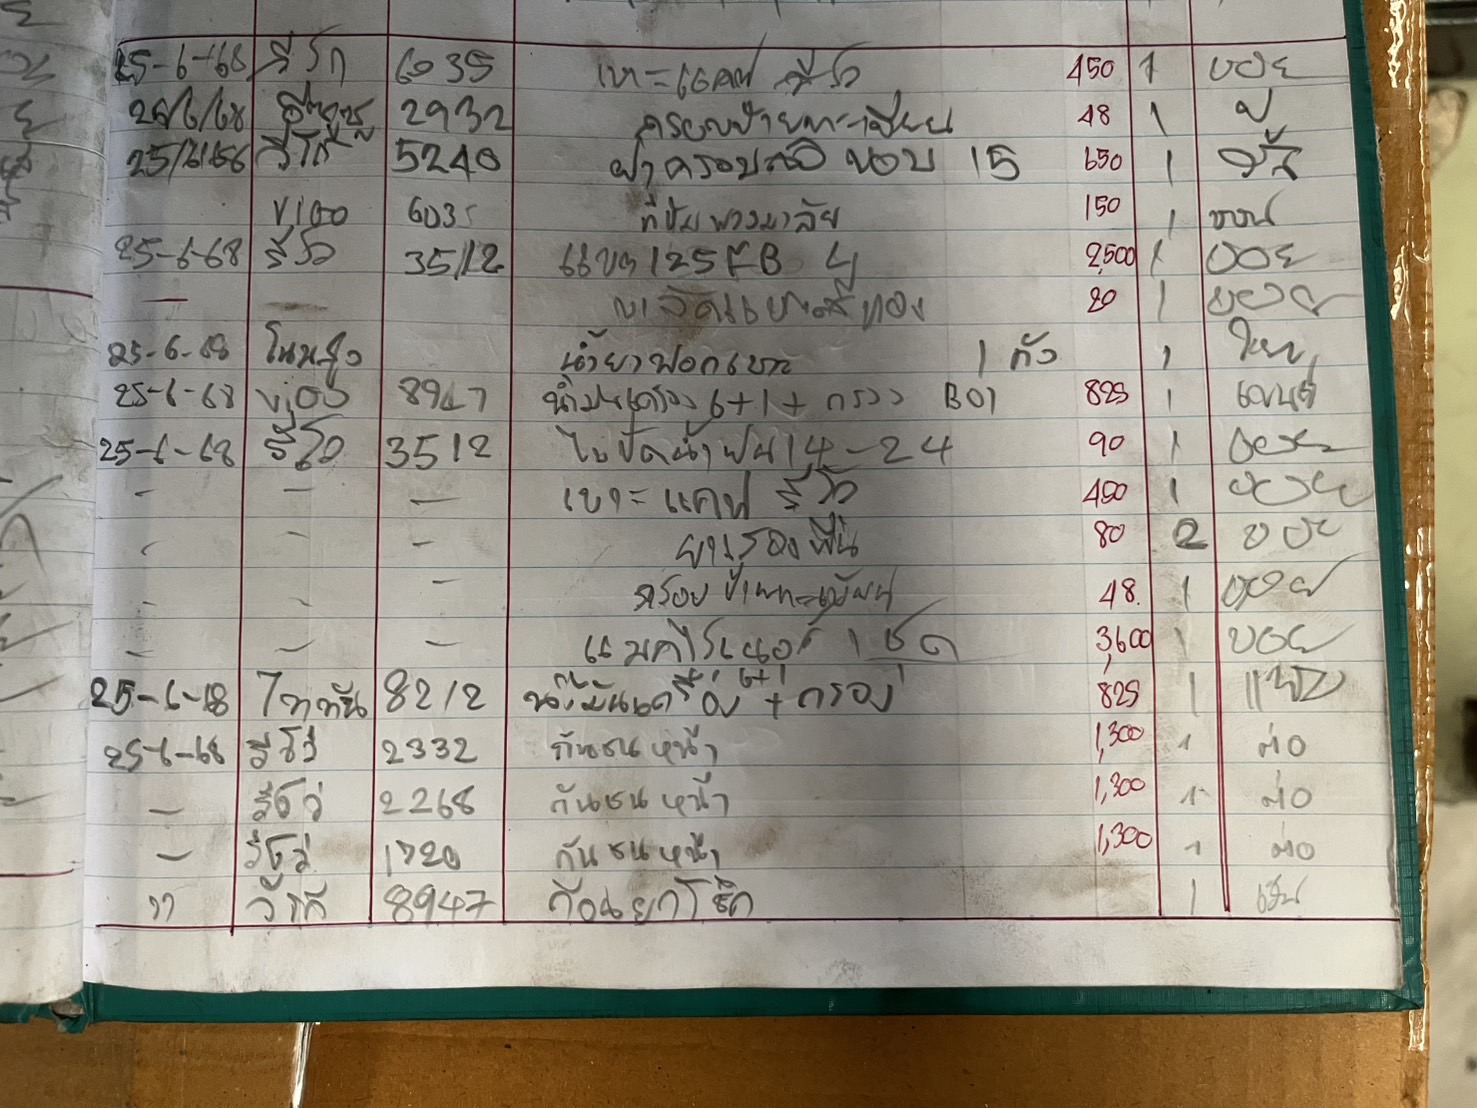 25-6-68 รีโว 6035 เบาะแคป รีโว้ 450 1 ขอย
25/6/68 อีซูซุ 2932 ครอบป้ายทะเบียน 48 1
25/6/68 วีโก้ 5240 ฝาครอบล้อ ขอบ 15 650 1
V100 6035 ที่หุ้มพวงมาลัย 150 1
25-6-68 รีโว 3512 แบต 125 FB 2,500 1 ขอย
— — 20 1 ขอย
25-6-68 น้ำยาฟอกเบาะ 1 ถัง 1 ใหญ่
25-6-68 8947 น้ำมันเครื่อง 6+1 + กรอง B01 825 1
25-6-68 รีโว 3512 ใบปัดน้ำฝน 14-24 90 1 ขอย
- - - เบาะแคป รีโว้ 450 1 ขอย
- - - ยางรองพื้น 80 2 ขอย
- - - ครอบป้ายทะเบียน 48 1 ขอย
- - - แมคไรเนอร์ 1 ชุด 3,600 1 ขอย
25-6-68 ไททัน 8212 น้ำมันเครื่อง 6+1 + กรอง 825 1
25-6-68 รีโว่ 2332 กันชนหน้า 1,300 1 ต่อ
- รีโว่ 2268 กันชนหน้า 1,300 1 ต่อ
- รีโว่ 1720 กันชนหน้า 1,300 1 ต่อ
" วีโก้ 8947 1